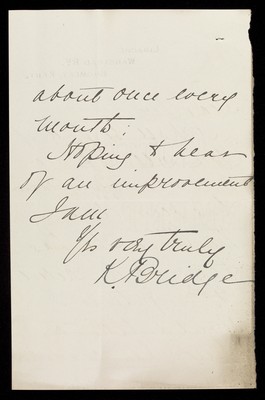 about once every
month.
Hoping to hear
of an improvement
I am
Yrs very truly
K. Bridge